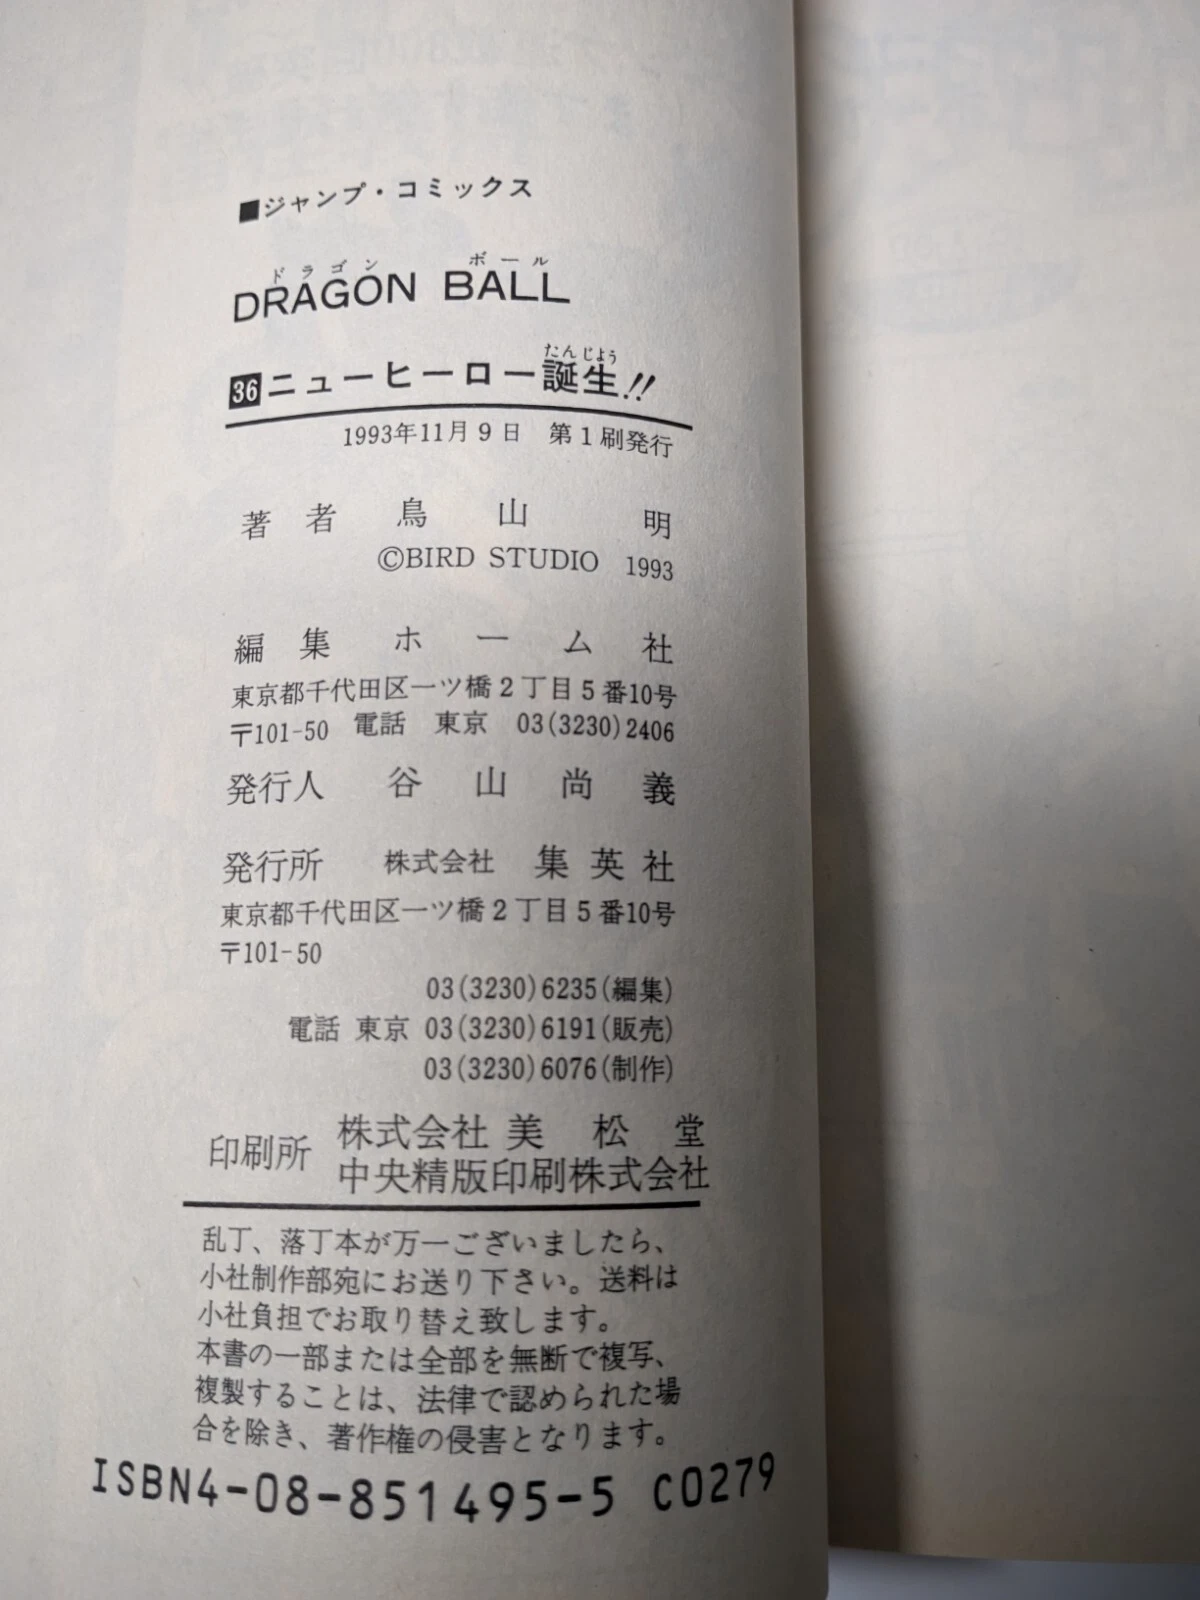 ■ジャンプ・コミックス
ドラゴン ボール
DRAGON BALL
たんじよう
36 ニューヒーロー誕生!!
1993年11月9日 第1刷発行
著者 鳥山 明
©BIRD STUDIO 1993
編集 ホーム社
東京都千代田区一ツ橋2丁目5番10号
〒101-50 電話 東京 03(3230)2406
発行人 谷山尚義
発行所 株式会社 集英社
東京都千代田区一ツ橋2丁目5番10号
〒101-50
03(3230)6235(編集)
電話 東京 03(3230)6191(販売)
03(3230)6076(制作)
印刷所 株式会社 美松堂
中央精版印刷株式会社
乱丁、落丁本が万一ございましたら、
小社制作部宛にお送り下さい。送料は
小社負担でお取り替え致します。
本書の一部または全部を無断で複写、
複製することは、法律で認められた場
合を除き、著作権の侵害となります。
ISBN4-08-851495-5 C0279